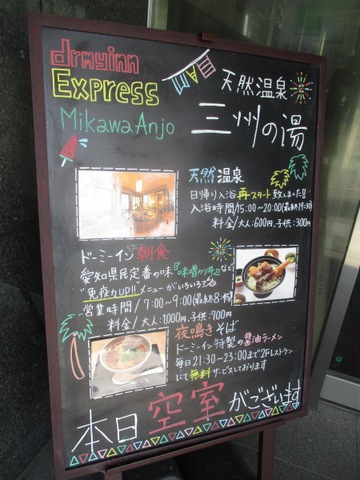 dormyinn
EXPRESS
Mikawa Anjo
天然温泉
三州の湯
天然温泉
日帰り入浴再スタート致しました!!
入浴時間/15:00~20:00(最終19:30)
料金/大人:600円,子供:300円
ドーミーイン朝食
愛知県民定番の味『味噌カツ丼』など
"免疫力UP!!"メニューがいろいろ♪
営業時間/7:00~9:00(最終8:45)
料金/大人:1000円,子供:700円
夜鳴きそば
ドーミーイン特製の醤油ラーメン
毎日21:30~23:00まで2Fレストラン
にて無料サービスしております
本日空室がございます